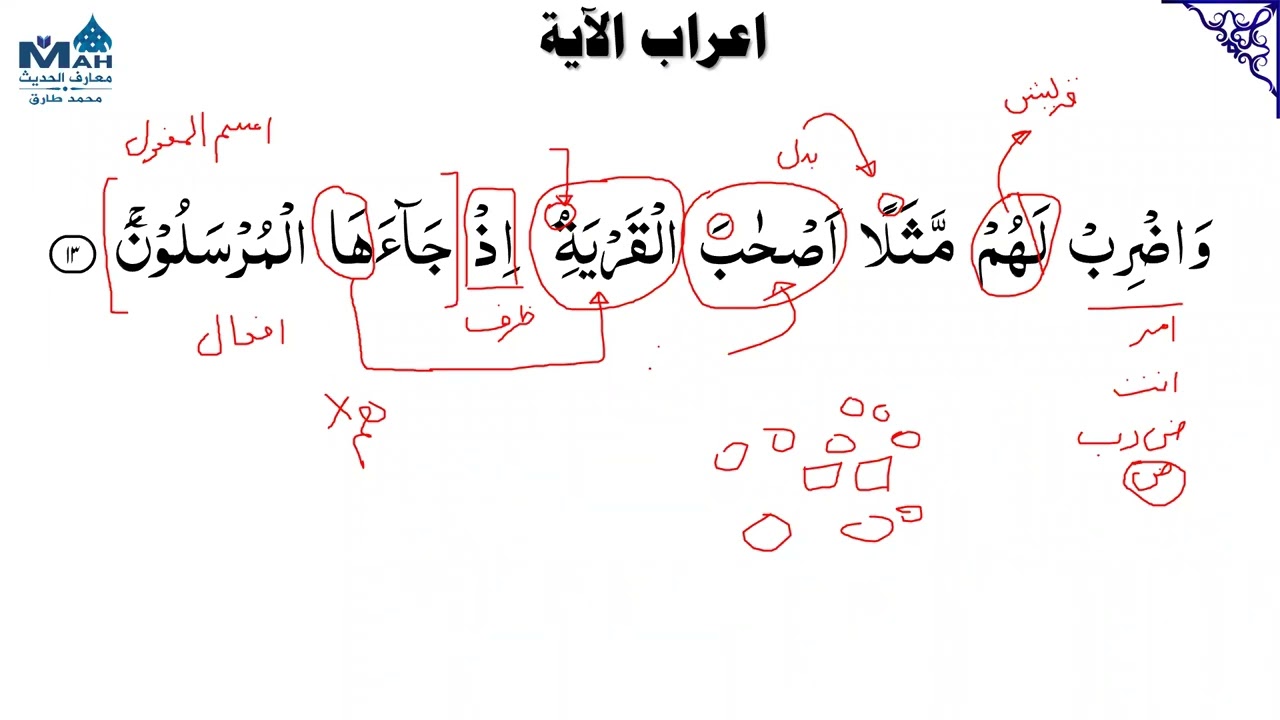 اعراب الآية
MAH
معارف الحديث
محمد طارق
قريش
اسم المفعول
بدل
وَاضْرِبْ لَهُمْ مَّثَلًا اَصْحٰبَ الْقَرْيَةِ ۘ اِذْ جَآءَهَا الْمُرْسَلُوْنَ ۚ ١٣
امر
ظرف
افعال
انت
هم X
ض ر ب
ض